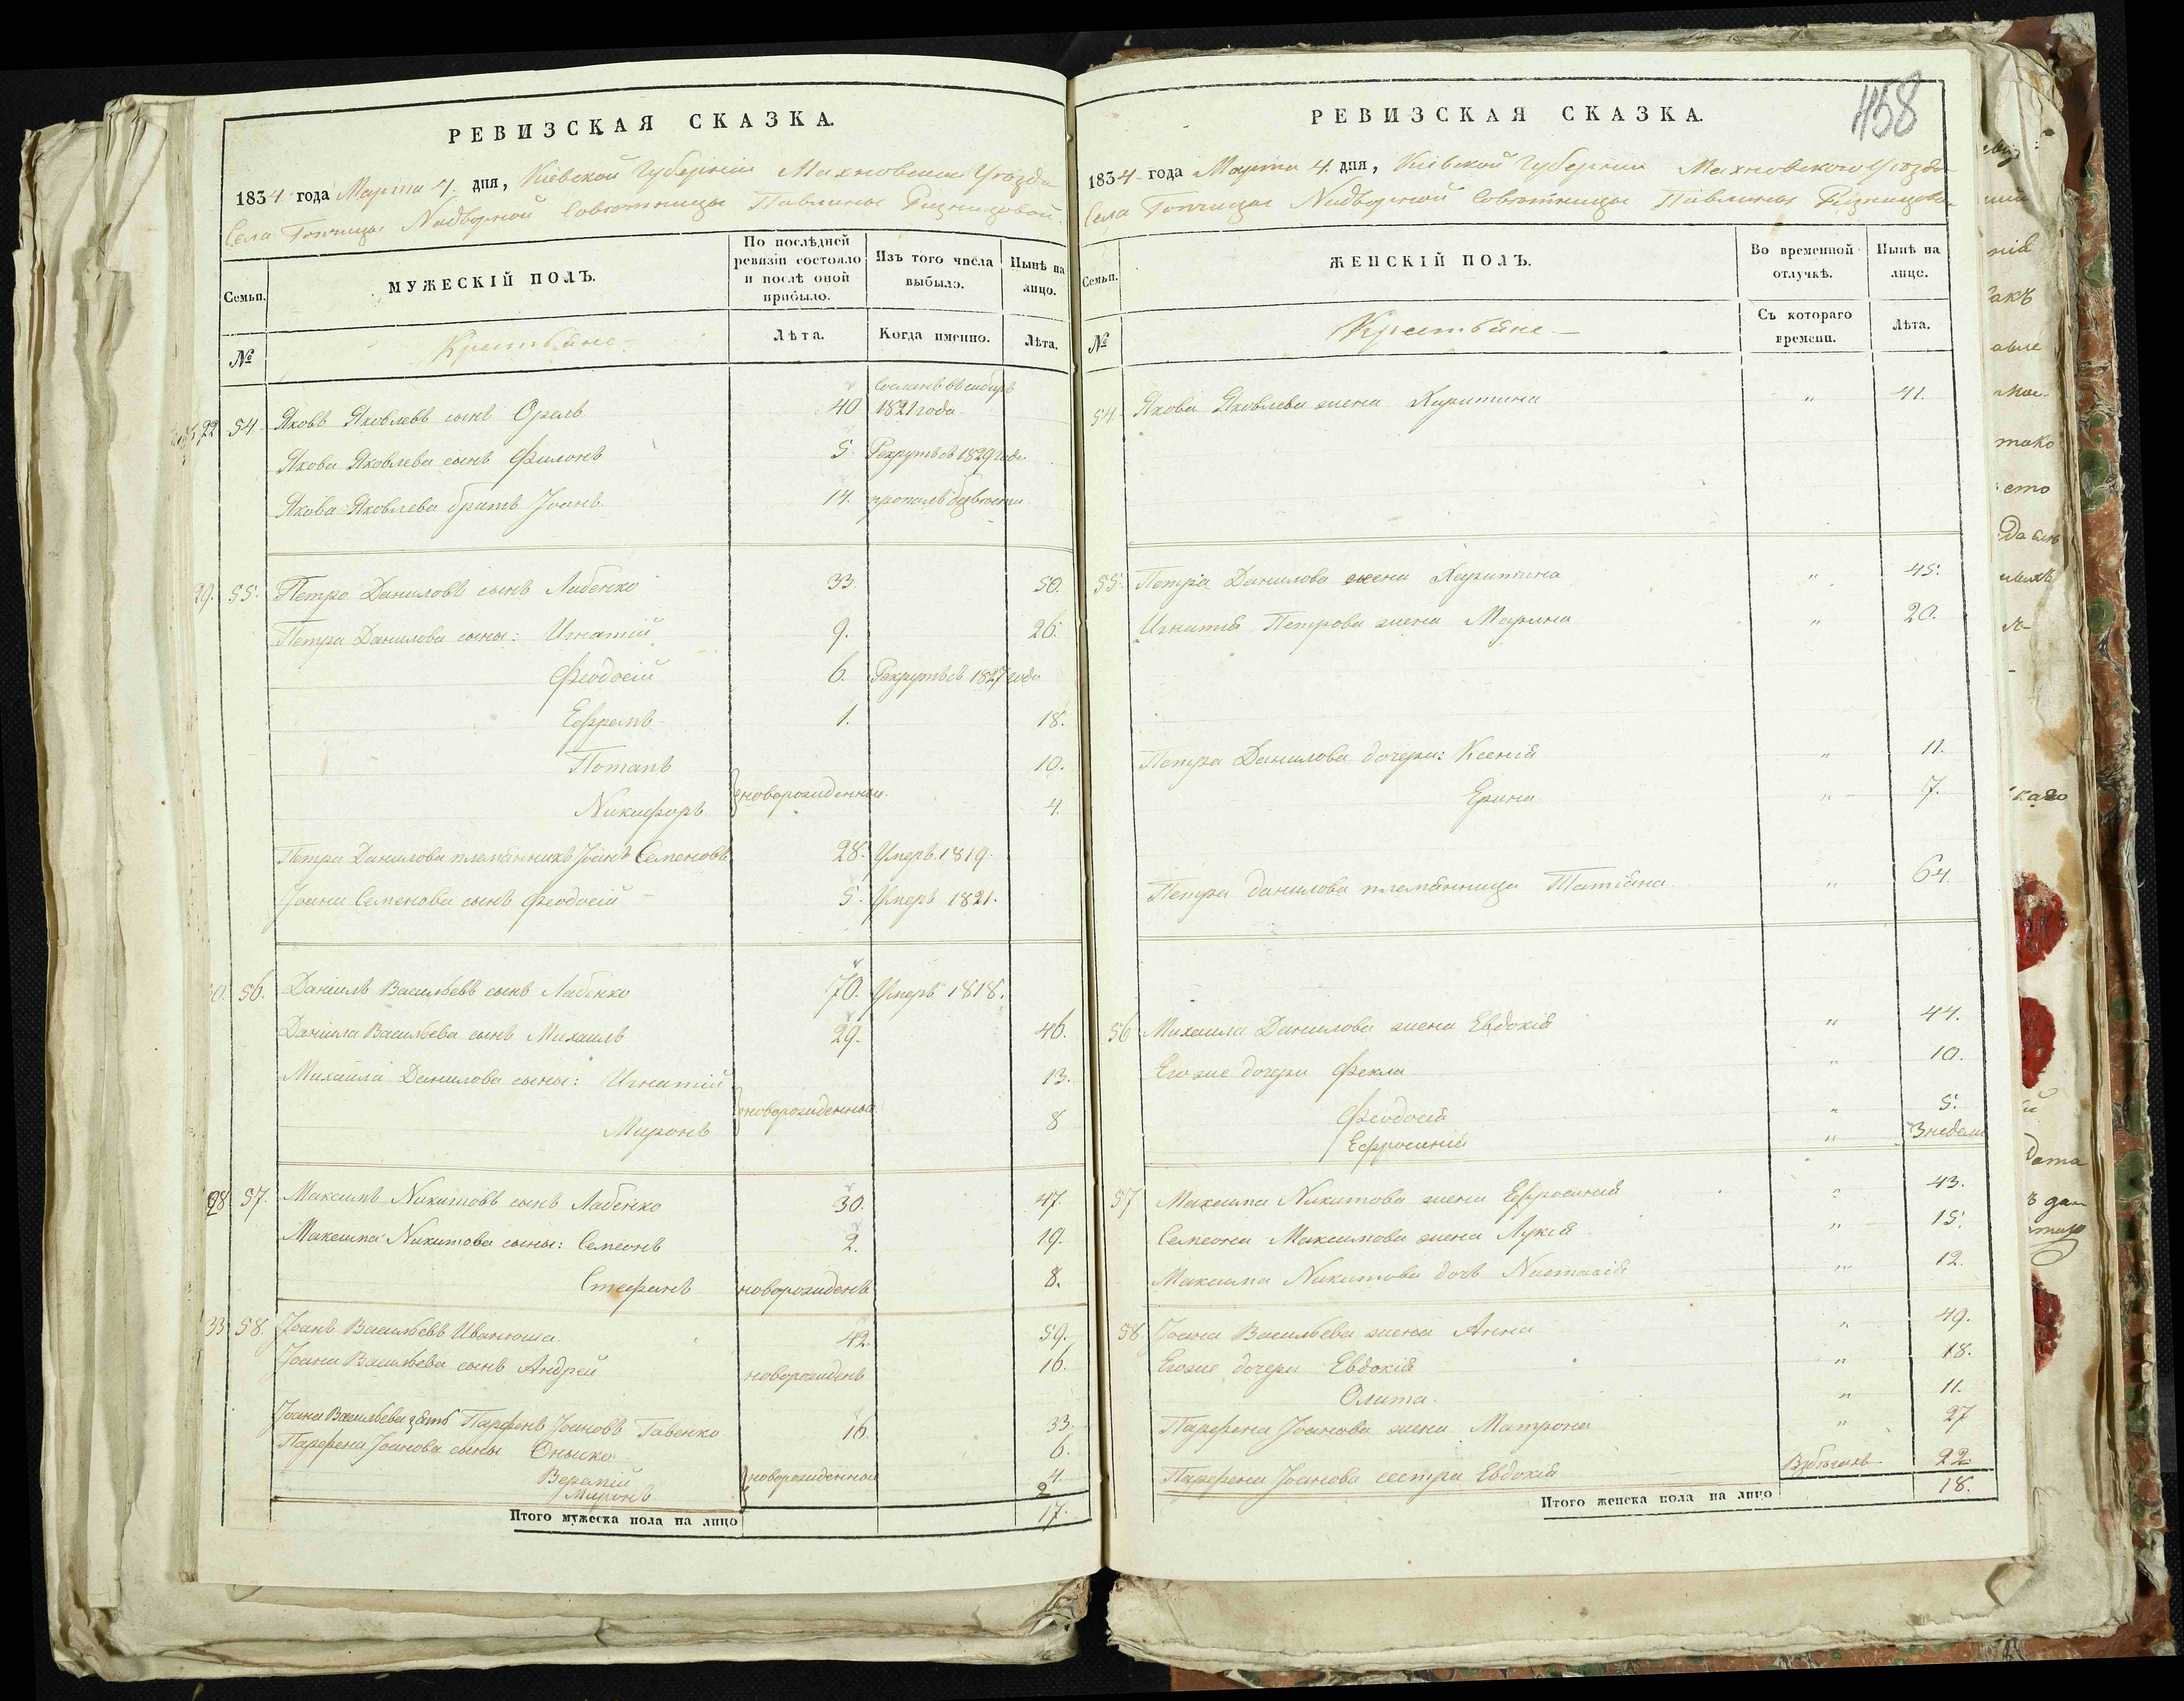 РЕВИЗСКАЯ СКАЗКА.
1834 года Марта 4. дня, Кіевской Губерніи Махновского Уѣзда
Села Топчицы Надворной Совѣтницы Павлины
Семьи.
МУЖЕСКІЙ ПОЛЪ.
По послѣдней ревизіи состояло и послѣ оной прибыло.
Изъ того числа выбыло.
Нынѣ на лицо.
№
Крестьяне
Лѣта.
Когда именно.
Лѣта.
22 54. Яковъ Яковлевъ сынъ Орелъ 40 Сосланъ въ сибирь 1821 года.
Якова Яковлева сынъ Филонъ 5. Рекрутъ съ 1829 года.
Якова Яковлева братъ Іоанъ. 14. пропалъ
29. 55. Петро Даниловъ сынъ Лабенко 33. 50.
Петра Данилова сыны: Игнатій 9. 26.
Феодосій 6. Рекрутъ съ 1827 года
Ефремъ 1. 18.
Потапъ 10.
новорожденныи.
Никифоръ 4.
Петра Данилова племянникъ Іоанъ Семеновъ 28. Умеръ 1819.
Іоана Семенова сынъ Феодосій 5. Умеръ 1821.
56. Даніилъ Васильевъ сынъ Лабенко 70. Умеръ 1818.
Даніила Васильева сынъ Михаилъ 29. 46.
Михаила Данилова сыны: Игнатій 13.
новорожденныи
Миронъ 8
28 57. Максимъ Никитовъ сынъ Лабенко 30. 47.
Максима Никитова сыны: Семеонъ 2. 19.
Стефанъ новорожденъ 8.
33 58. Іоанъ Васильевъ Иванюша. 42. 59.
Іоана Васильева сынъ Андрей новорожденъ 16.
Іоана Васильева зять Парфенъ Іоановъ Гавенко 16. 33.
Парфена Іоанова сыны Оныско 6.
4.
новорожденныи
Миронъ 2
Итого мужеска пола на лицо 17.
458
РЕВИЗСКАЯ СКАЗКА.
1834 года Марта 4. дня, Кіевской Губерніи Махновского Уѣзда
Села Топчицы Надворной Совѣтницы Павлины
Семьи.
ЖЕНСКІЙ ПОЛЪ.
Во временной отлучкѣ.
Нынѣ на лице.
№
Крестьяне
Съ котораго времени.
Лѣта.
54. Якова Яковлева жена Харитина " 41.
55. Петра Данилова жена Харитина " 45.
Игнатія Петрова жена Марина " 20.
Петра Данилова дочери: Ксенія " 11.
Ерина " 7.
Петра данилова племянница Татіяна. " 64.
56 Михаила Данилова жена Евдокія " 44.
Его же дочери Фекла " 10.
Феодосія " 5.
Ефросинія " 3 недели
57 Максима Никитова жена Ефросинія " 43.
Семеона Максимова жена Лукія " 15.
Максима Никитова дочь Настасія " 12.
58. Іоана Васильева жена Анна " 49.
Его же дочери Евдокія " 18.
Олита. " 11.
Парфена Іоанова жена Матрона " 27
Парфена Іоанова сестра Евдокія 22
Итого женска пола на лицо 18.